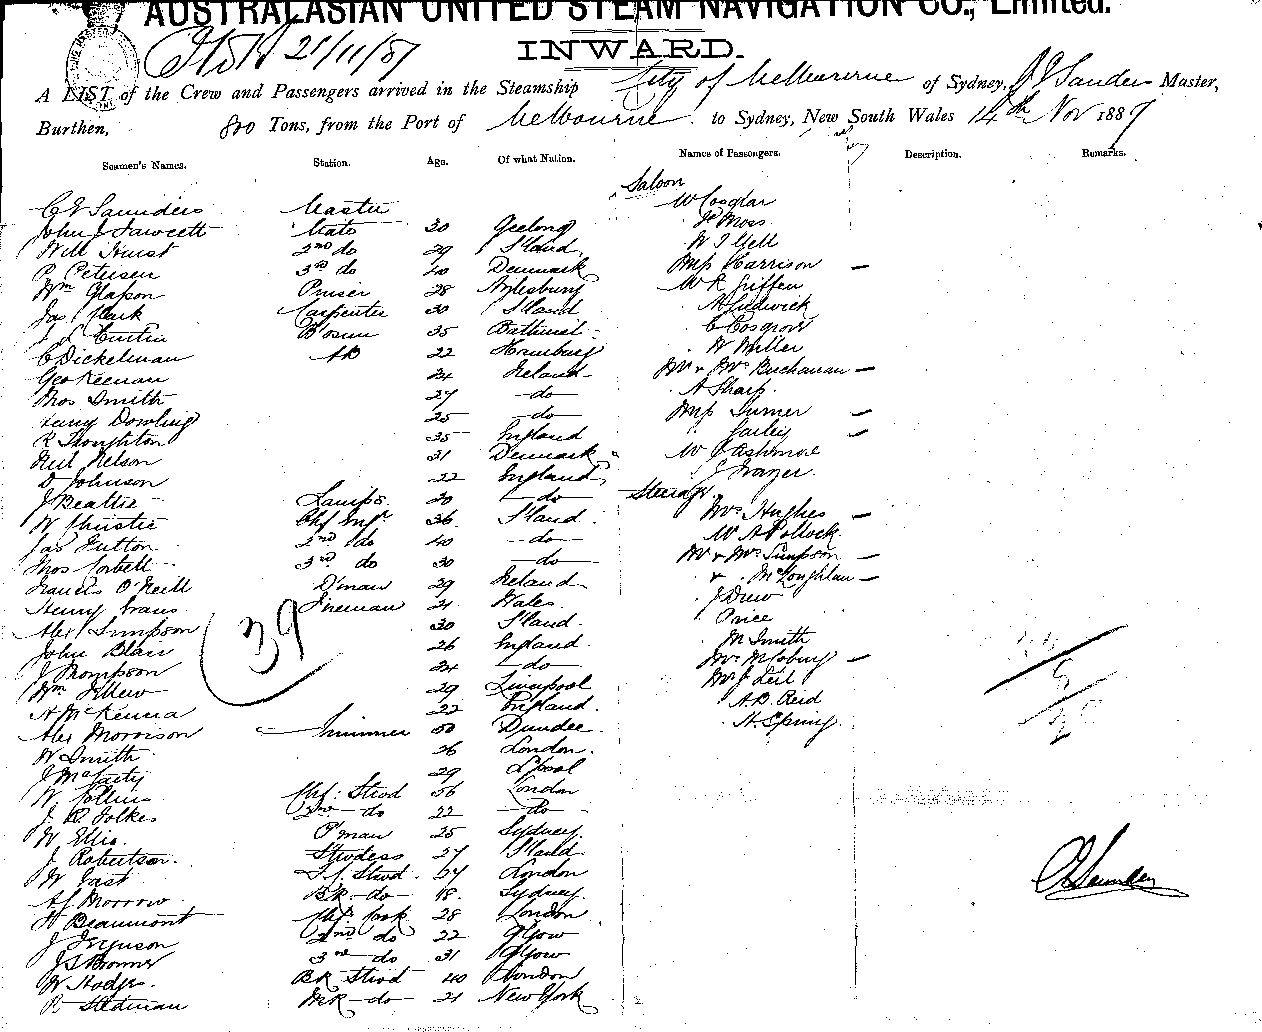 AUSTRALASIAN UNITED STEAM NAVIGATION CO., Limited.
21/11/87
INWARD.
A LIST of the Crew and Passengers arrived in the Steamship City of Melbourne of Sydney, Saunders Master,
Burthen, 800 Tons, from the Port of Melbourne to Sydney, New South Wales 14th Nov 1887
Seamen's Names. Station. Age. Of what Nation. Names of Passengers. Description. Remarks.
Saloon
Saunders Master
John J Fawcett Mate 30 Geelong Moss
Will Hurst 2nd do 29 S'land
P. Petersen 3rd do 40 Denmark Miss Harrison —
Wm Glasson Purser 28 Aylesbury
Jas Clark Carpenter 30 S'land A Ludwick
J Curtin B'osun 35 Bathurst C Cosgrove
C Dickelman AB 22 Hamburg W Miller
Geo Keenan 24 Ireland Mr & Mrs Buchanan —
Thos Smith 27 —do— A Sharp
Dowling 25 —do— Miss Turner —
R Stoughton 35 England —
Nelson 31 Denmark W Cashmore
D Johnson 22 England J Frazer
J Beattie Lamps 30 —do— Steerage
W Christie Chf Engr 36 S'land Mrs Hughes —
Jas Hutton 2nd do 40 —do— W A Pollock
Thos Corbett 3rd do 30 —do— Mr & Mrs Simpson —
Francis O'Neill D'man 29 Ireland & McLoughlan —
Henry Evans Fireman 21 Wales J Drew
Alex Simpson 30 S'land Price
John Blair 26 England M Smith
J Thompson 24 —do— Mrs —
Wm 29 Liverpool
A McKenna 22 England A.B. Reid
Alex Morrison Trimmer 50 Dundee H. Spring
W Smith 26 London
J McCarty 29 L'pool
W Collins Chf: Stwd 56 London
J. B. Folkes 2nd do 22 —do—
W Ellis P'man 25 Sydney
J Robertson Stwdess 27 S'land
W East F.S. Stwd. 27 London
A J Morrow BK —do— 18 Sydney
H Beaumont Chf. Cook 28 London
J Ferguson 2nd do 22 G'gow
3rd —do— 31 G'gow
W Hodges BK Stwd 40 London
R Stedman —do— 21 New York
39
Saunders